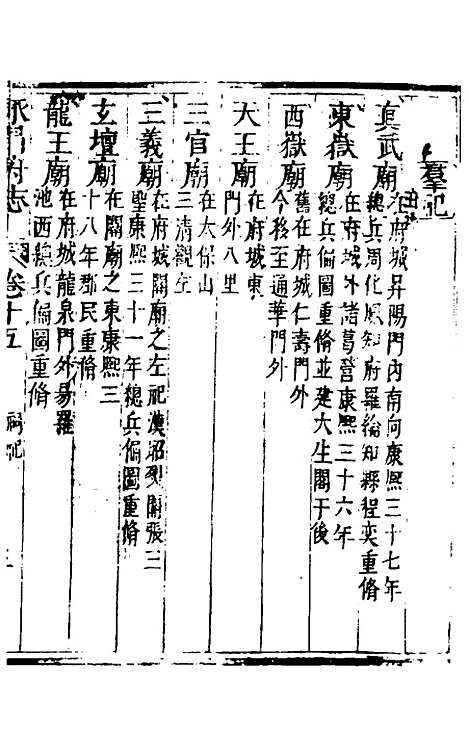 羣祀
真武廟 在府城昇陽門內南向康熙三十七年
總兵周化鳳知府羅綸知縣程奕重脩
東嶽廟 在府城外諸葛營康熙三十六年
總兵偏圖重脩並建大生閣于後
西嶽廟 舊在府城仁壽門外
今移至通華門外
大王廟 在府城東
門外八里
三官廟 在太保山
三清觀左
三義廟 在府城關廟之左祀漢昭烈關張三
聖康熙三十一年總兵偏圖重脩
玄壇廟 在關廟之東康熙三
十八年郡民重脩
龍王廟 在府城龍泉門外易羅
池西總兵偏圖重脩
永昌府志 卷十五 祠祀